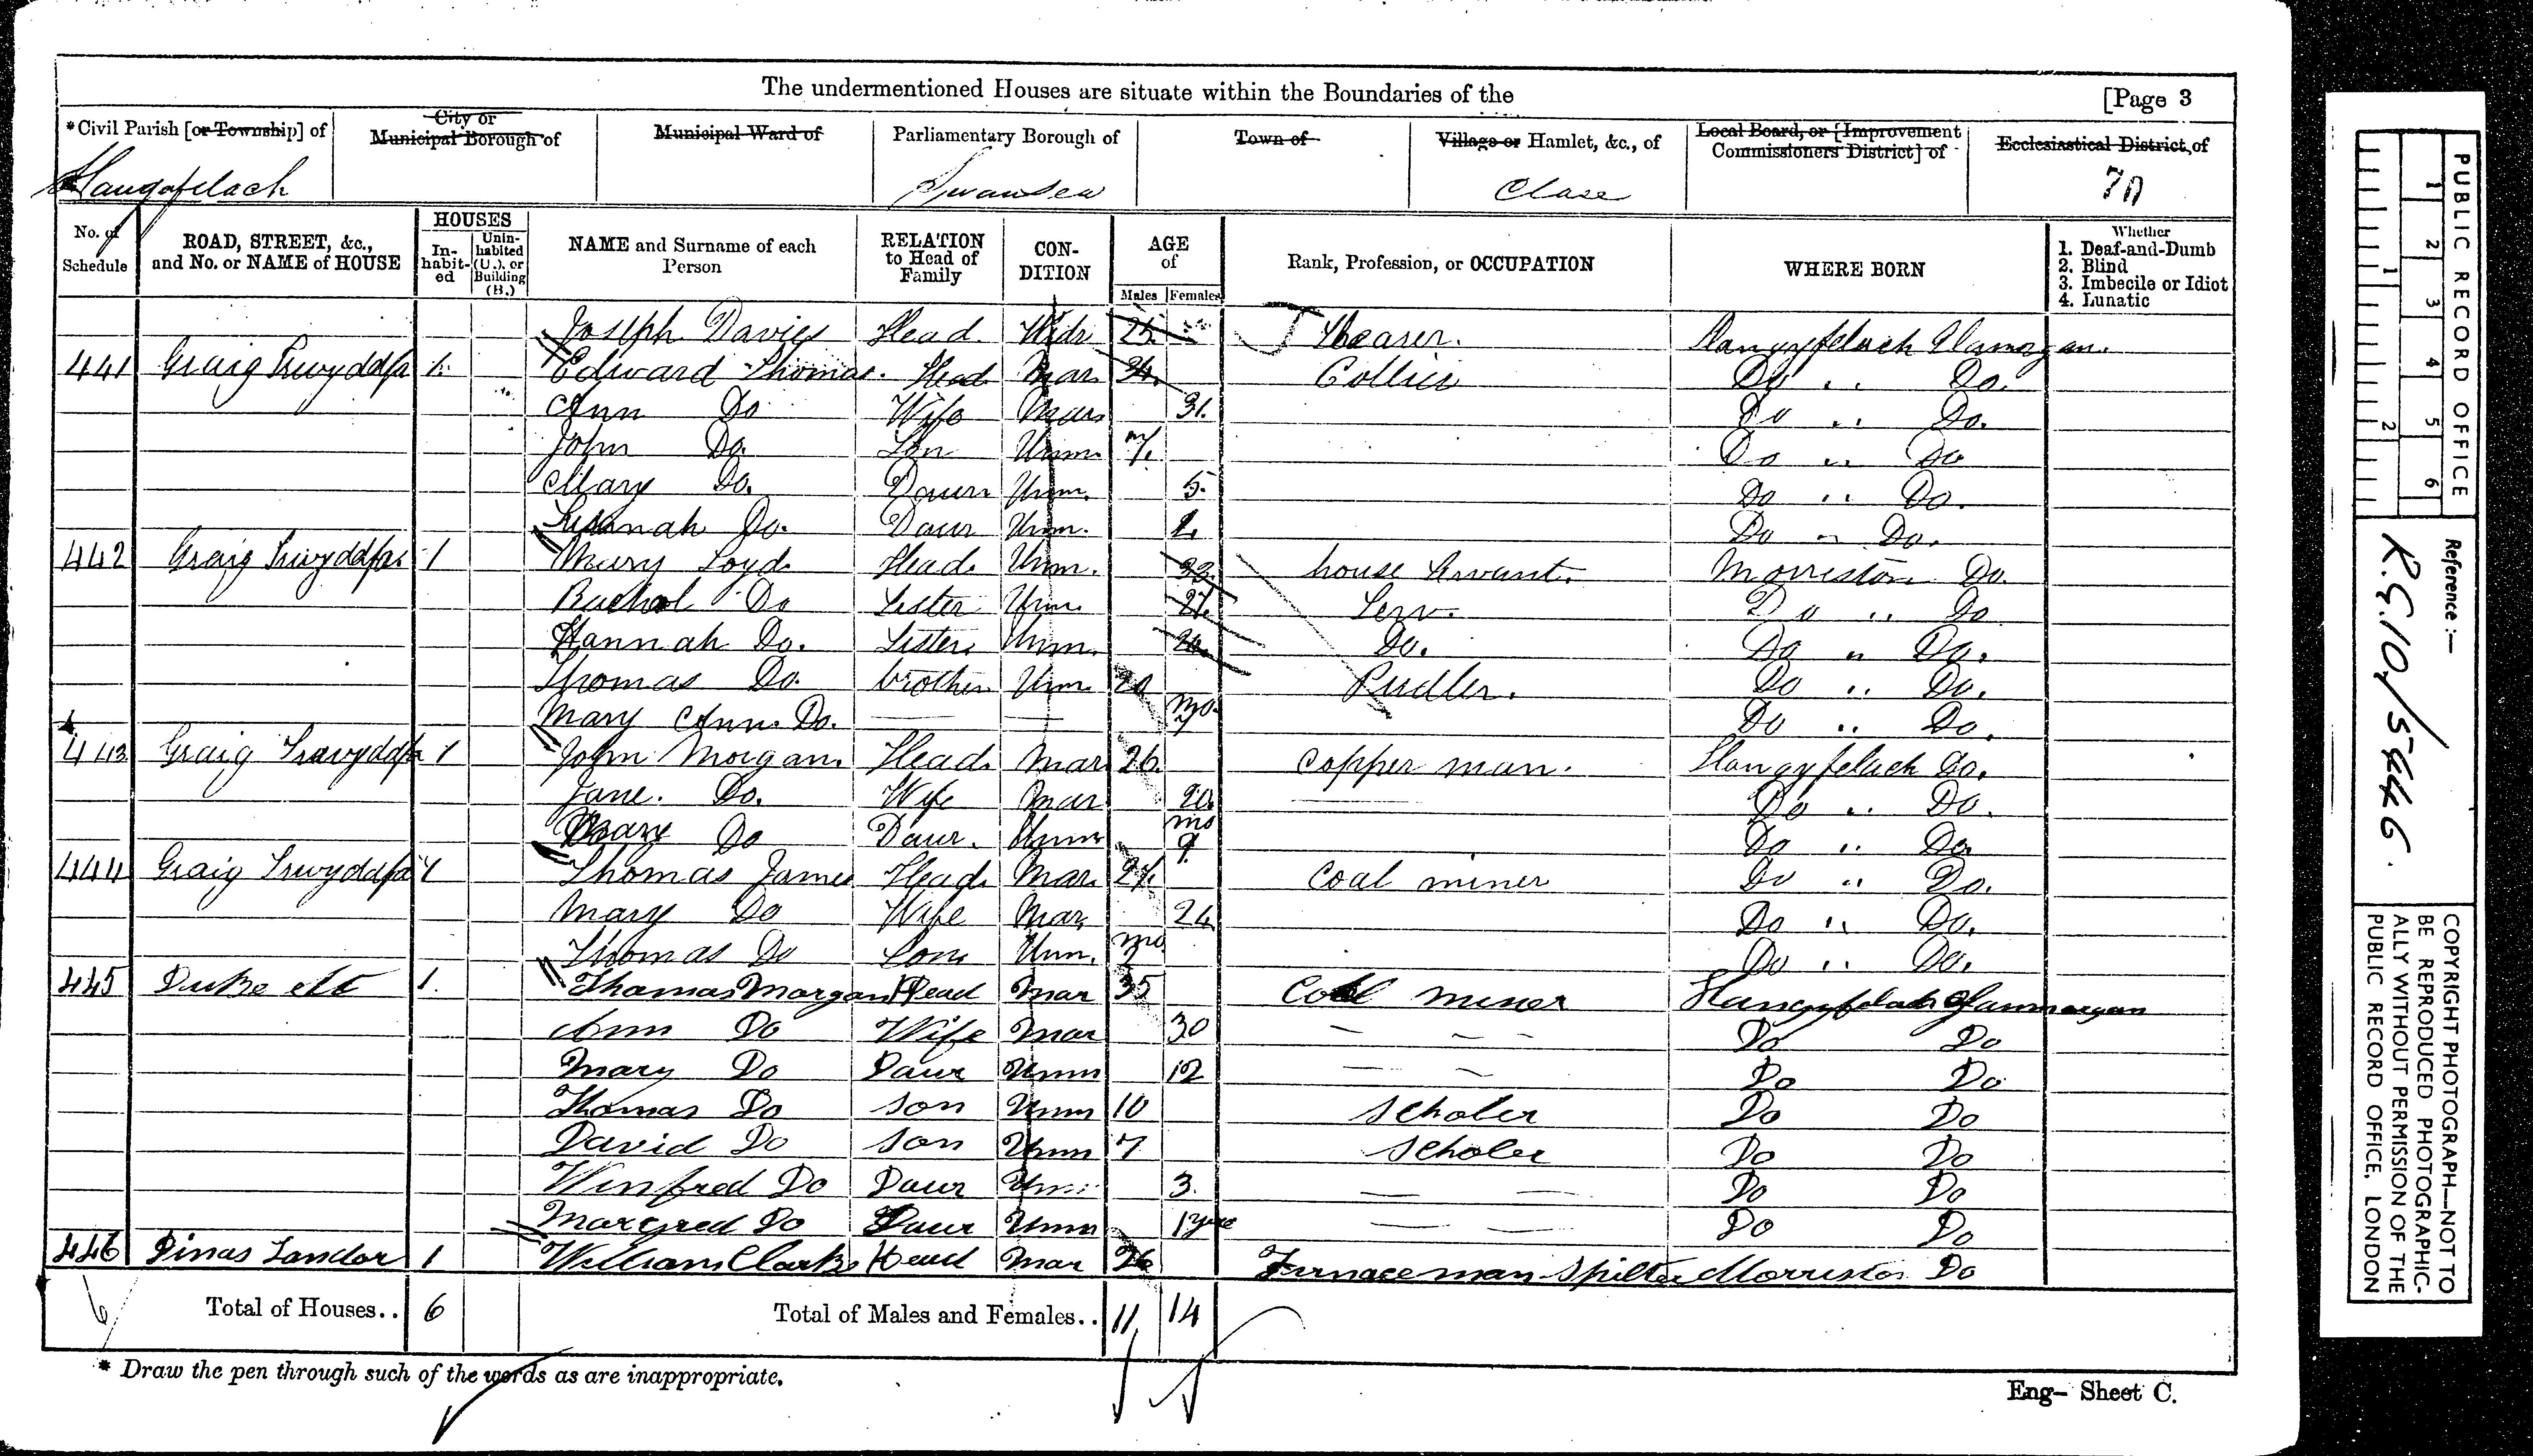 The undermentioned Houses are situate within the Boundaries of the
[Page 3
*Civil Parish [or Township] of
City or Municipal Borough of
Municipal Ward of
Parliamentary Borough of
Town of
Village or Hamlet, &c., of
Local Board, or [Improvement Commissioners District] of
Ecclesiastical District, of
Llangafelach Swansea Clase
No. of Schedule
ROAD, STREET, &c., and No. or NAME of HOUSE
HOUSES
In-habit-ed
Unin-habited (U.), or Building (B.)
NAME and Surname of each Person
RELATION to Head of Family
CON-DITION
AGE of
Males Females
Rank, Profession, or OCCUPATION
WHERE BORN
Whether
1. Deaf-and-Dumb
2. Blind
3. Imbecile or Idiot
4. Lunatic
Joseph Davies Head Widr 25 Llangyfelach Glamorgan.
441 Graig Trwyddfa 1 Edward Thomas. Head Mar. 34. Collier Do .. Do.
Ann Do Wife Mar 31. Do .. Do.
John Do. Son Unm. 7. Do .. Do
Mary Do. Daur Unm. 5. Do .. Do.
Susanah Do. Daur Unm. Do .. Do.
442 Graig Trwyddfa 1 Mary Loyd Head Unm. house Servant. Morriston Do.
Rachel Do Sister Unm. 21. Serv. Do .. Do
Hannah Do. Sister Unm. Do. Do .. Do.
Thomas Do. brother Unm. 20 Pudler. Do .. Do.
Mary Ann Do. — — mo 7 Do .. Do.
443 Graig Trwyddfa 1 John Morgan Head Mar 26. Copper man. Llangyfelach Do.
Jane. Do. Wife Mar 20. Do .. Do.
Mary Do Daur. Unm mo 9. Do .. Do.
444 Graig Trwyddfa 1 Thomas James Head Mar. 27. Coal miner Do .. Do.
Mary Do Wife Mar, 24 Do .. Do.
Thomas Do Son Unm. mo Do .. Do.
445 Duke st 1. Thomas Morgan Head Mar 35 Coal miner Llangyfelach Glammorgan
Ann Do Wife Mar 30 — — — Do Do
Mary Do Daur Unm 12 — — Do Do
Thomas Do son Unm 10 Scholer Do Do
David Do son Unm 7 Scholer Do Do
Winfred Do Daur Unm 3. — — Do Do
Margred Do Daur Unm 1 — — Do Do
446 Pinas Landor 1 William Clark Head Mar 26 Furnace man Morriston Do
Total of Houses.. 6 Total of Males and Females.. 11 14
* Draw the pen through such of the words as are inappropriate.
Eng- Sheet C.
PUBLIC RECORD OFFICE
1 2 3 4 5 6
1 2
Reference :—
R.G. 10/5446.
COPYRIGHT PHOTOGRAPH—NOT TO
BE REPRODUCED PHOTOGRAPHIC-
ALLY WITHOUT PERMISSION OF THE
PUBLIC RECORD OFFICE, LONDON